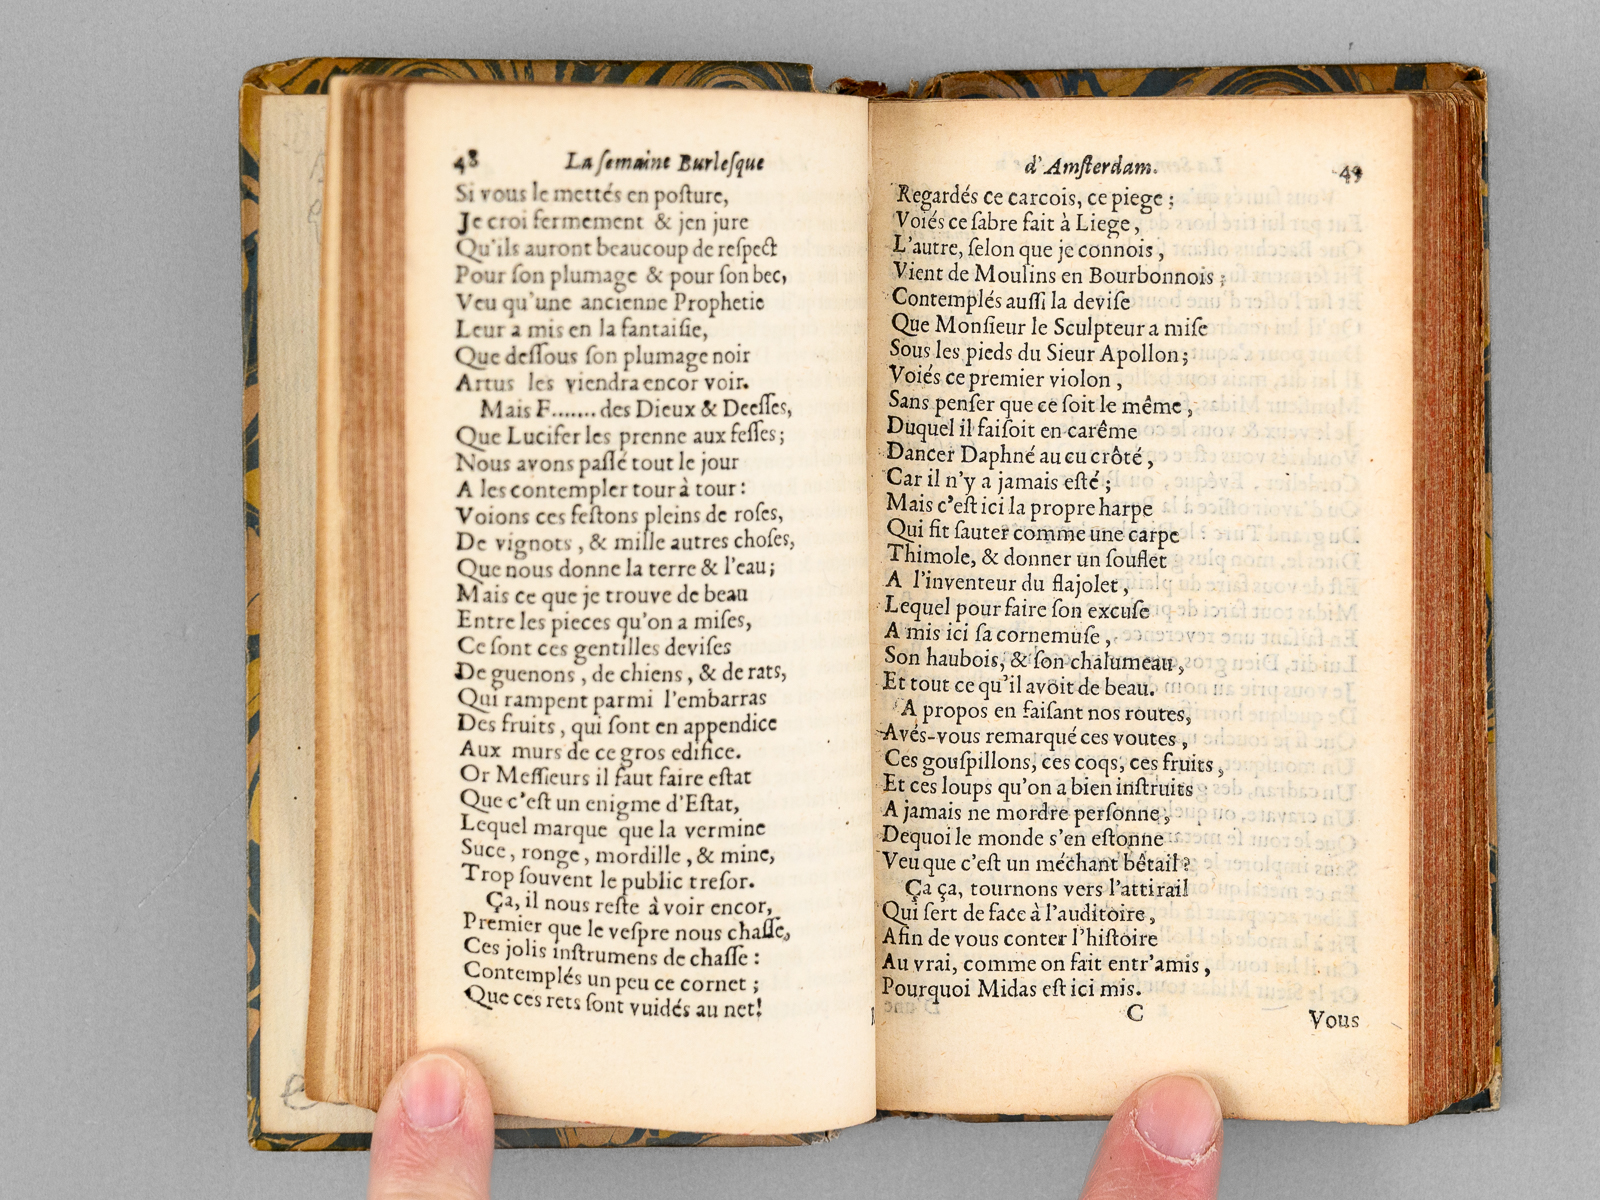 48 La ſemaine Burleſque
Si vous le mettés en poſture,
Je croi fermement & jen jure
Qu'ils auront beaucoup de reſpect
Pour ſon plumage & pour ſon bec,
Veu qu'une ancienne Prophetie
Leur a mis en la fantaiſie,
Que deſſous ſon plumage noir
Artus les viendra encor voir.
Mais F....... des Dieux & Deeſſes,
Que Lucifer les prenne aux feſſes;
Nous avons paſſé tout le jour
A les contempler tour à tour:
Voions ces feſtons pleins de roſes,
De vignots, & mille autres choſes,
Que nous donne la terre & l'eau;
Mais ce que je trouve de beau
Entre les pieces qu'on a miſes,
Ce ſont ces gentilles deviſes
De guenons, de chiens, & de rats,
Qui rampent parmi l'embarras
Des fruits, qui ſont en appendice
Aux murs de ce gros edifice.
Or Meſſieurs il faut faire eſtat
Que c'eſt un enigme d'Eſtat,
Lequel marque que la vermine
Suce, ronge, mordille, & mine,
Trop ſouvent le public treſor.
Ça, il nous reſte à voir encor,
Premier que le veſpre nous chaſſe,
Ces jolis inſtrumens de chaſſe:
Contemplés un peu ce cornet;
Que ces rets ſont vuidés au net!
d'Amſterdam. 49
Regardés ce carcois, ce piege;
Voiés ce ſabre fait à Liege,
L'autre, ſelon que je connois,
Vient de Moulins en Bourbonnois;
Contemplés auſſi la deviſe
Que Monſieur le Sculpteur a miſe
Sous les pieds du Sieur Apollon;
Voiés ce premier violon,
Sans penſer que ce ſoit le même,
Duquel il faiſoit en carême
Dancer Daphné au cu crôté,
Car il n'y a jamais eſté;
Mais c'eſt ici la propre harpe
Qui fit ſauter comme une carpe
Thimole, & donner un ſouflet
A l'inventeur du flajolet,
Lequel pour faire ſon excuſe
A mis ici ſa cornemuſe,
Son haubois, & ſon chalumeau,
Et tout ce qu'il avoit de beau.
A propos en faiſant nos routes,
Avés-vous remarqué ces voutes,
Ces gouſpillons, ces coqs, ces fruits,
Et ces loups qu'on a bien inſtruits
A jamais ne mordre perſonne,
Dequoi le monde s'en eſtonne
Veu que c'eſt un méchant bêtail?
Ça ça, tournons vers l'attirail
Qui ſert de face à l'auditoire,
Afin de vous conter l'hiſtoire
Au vrai, comme on fait entr'amis,
Pourquoi Midas eſt ici mis.
C Vous